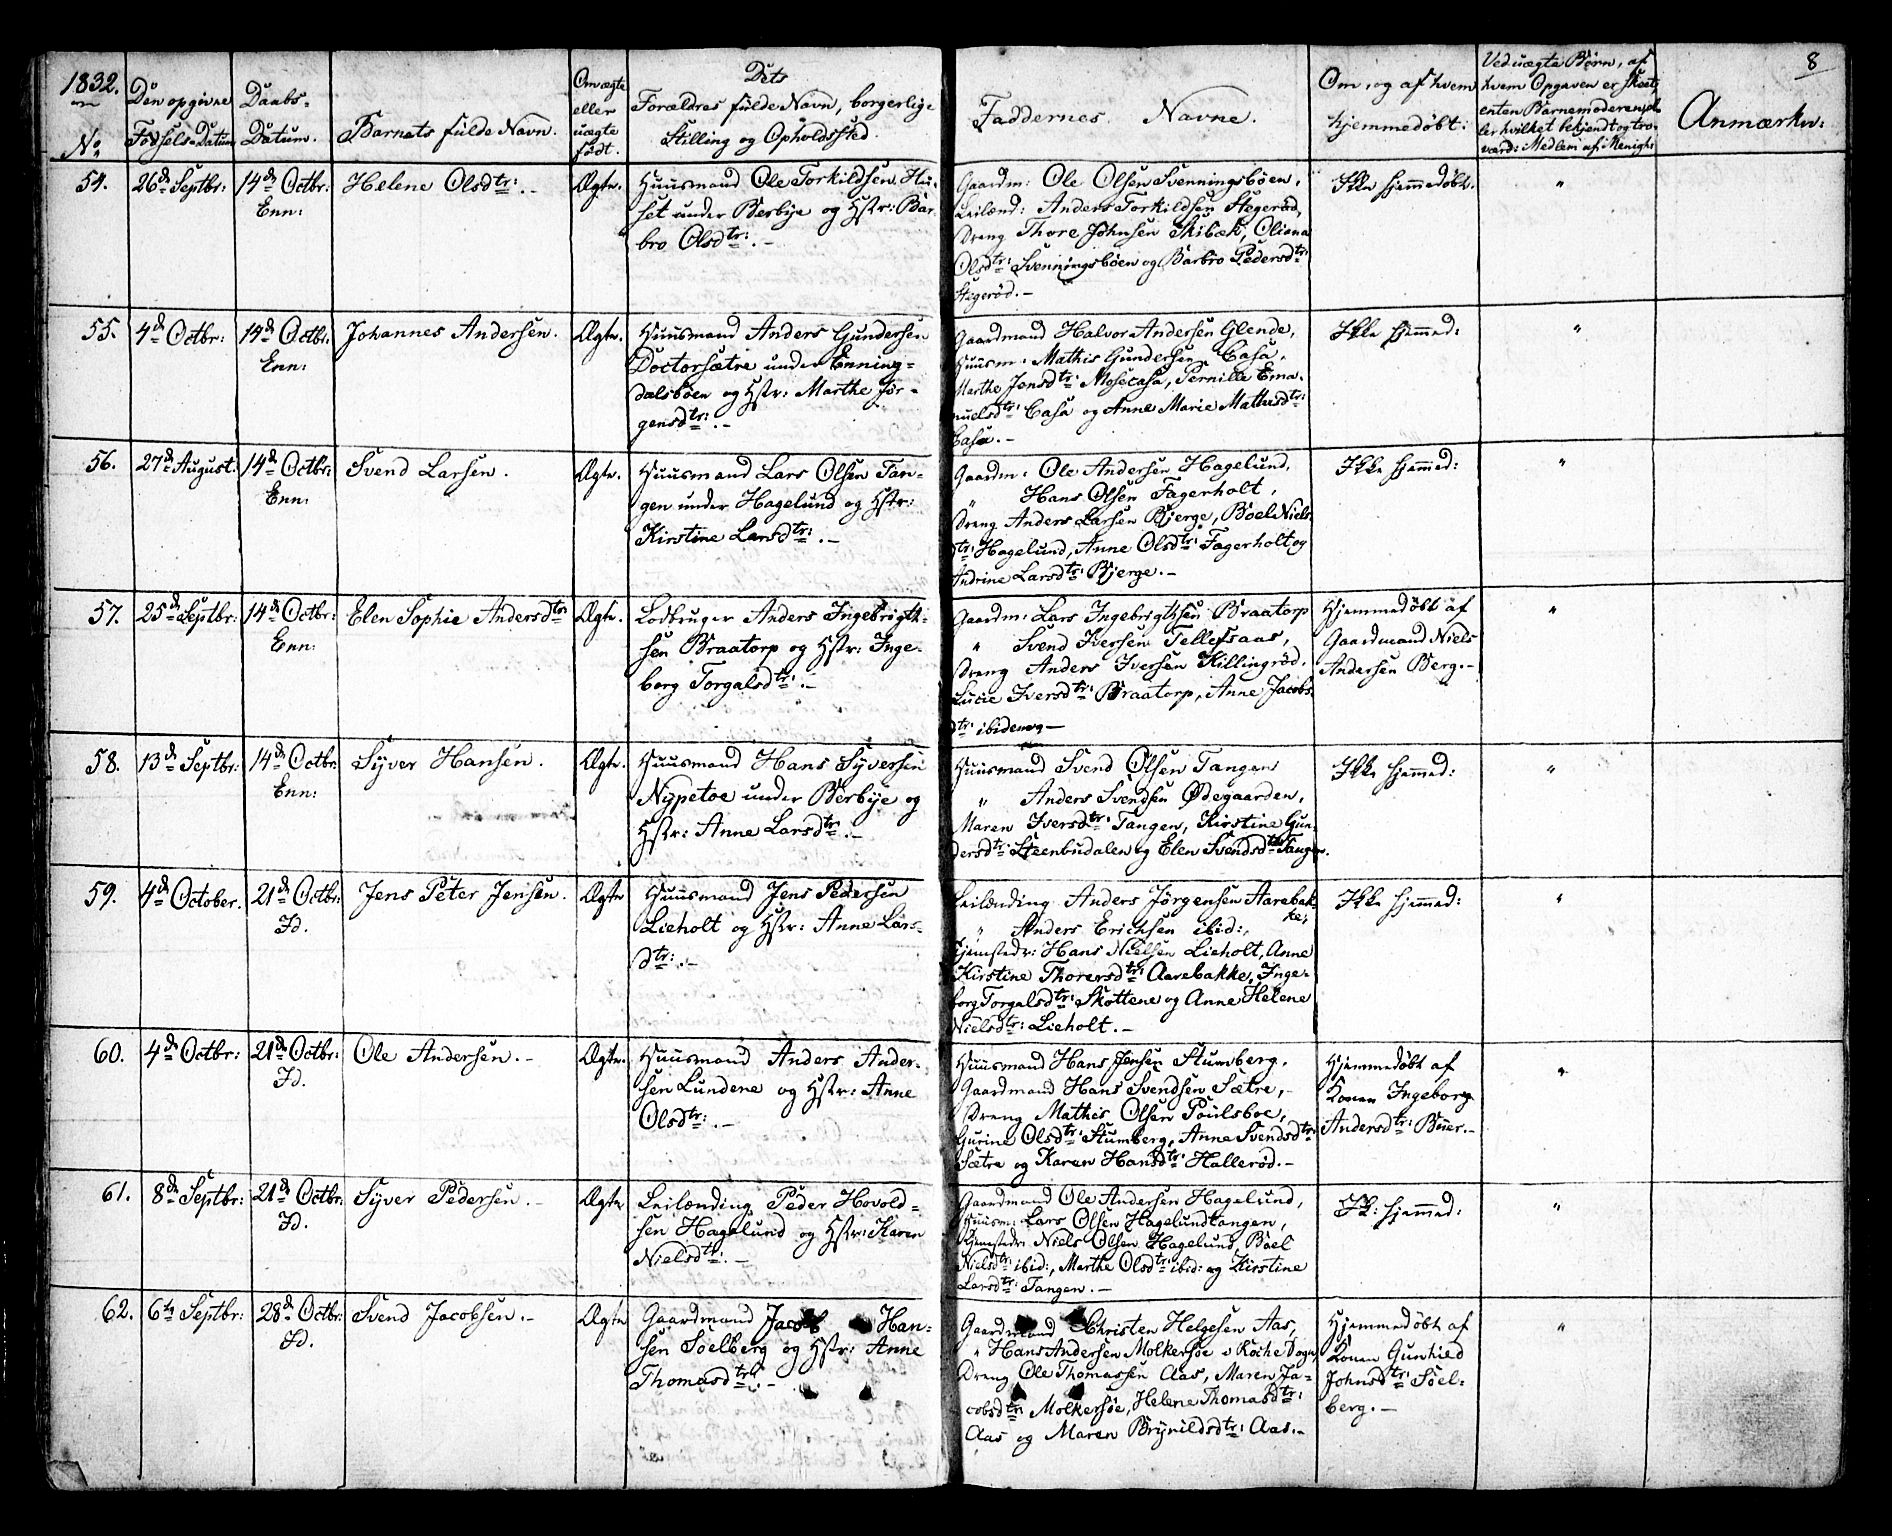 1832.
8
No.
Den opgivne
Fødsels-Datum
Daabs-
Datum.
Barnets fulde Navn.
Om ægte
eller
uægte
født.
Dets
Forældres fulde Navn, borgerlige
Stilling og Opholdssted.
Faddernes Navne.
Om, og af hvem
hjemmedøbt:
Ved uægte Børn, af
hvem Opgaven er skeet,
enten Barnemoderen, el-
ler hvilket bekjendt og tro-
værd: Medlem af Menigh:
Anmærkn:
54.
26de Septbr:
14de Octbr:
Enn:
Helene Olsdtr: .-
Ægte.
Huusmand Ole Torkildsen Hu-
set under Berbye og Hstr: Bar-
bro Olsdtr: .-
Gaardm: Ole Olsen Svenningsbøen,
Leilænd: Anders Torkildsen Stegerød,
Dreng Thore Johnsen Skibæk, Oliana
Olsdtr: Svenningsbøen og Barbro Pedersdtr:
Stegerød.-
Ikke hjemmedøbt.
"
55.
4de Octbr:
14de Octbr:
Enn:
Johannes Andersen.
Ægte.
Huusmand Anders Gundersen
Doctorsætre under Enning-
dalsbøen og Hstr: Marthe Jør-
gensdtr: .-
Gaardmand Halvor Andersen Glende,
Huusm: Mathis Gundersen Casa,
Marthe Jonsdtr: Mosecasa, Pernille Ema-
nuelsdtr: Casa og Anne Marie Mathisdtr:
Casa.-
Ikke hjemmed:
"
56.
27de August.
14de Octbr:
Enn:
Svend Larsen.
Ægte.
Huusmand Lars Olsen Tan-
gen under Hagelund og Hstr:
Kirstine Larsdtr: .-
Gaardm: Ole Andersen Hagelund,
" Hans Olsen Fagerholt,
Dreng Anders Larsen Bjerge, Boel Niels-
dtr: Hagelund, Anne Olsdtr: Fagerholt og
Andrine Larsdtr: Bjerge.-
Ikke hjemmed:
"
57.
25de Septbr:
14de Octbr:
Enn:
Elen Sophie Andersdtr:
Ægte.
Lodbruger Anders Ingebrigth-
sen Braatorp og Hstr: Inge-
borg Torgalsdtr: .-
Gaardm: Lars Ingebrigthsen Braatorp
" Svend Iversen Tellefsaas,
Dreng Anders Iversen Killingrød,
Lucie Iversdtr: Braatorp, Anne Jacobs-
dtr: ibidem.-
Hjemmedøbt af
Gaardmand Niels
Andersen Berg.-
"
58.
13de Septbr:
14de Octbr:
Enn:
Syver Hansen.
Ægte.
Huusmand Hans Syversen
Nypetoe under Berbye og
Hstr: Anne Larsdtr: .-
Huusmand Svend Olsen Tangen
" Anders Svendsen Ødegaarden,
Maren Iversdtr: Tangen, Kirstine Gun-
dersdtr: Steenbudalen og Elen Svendsdtr: Tangen.
Ikke hjemmed:
"
59.
4de October.
21de Octbr:
Id.
Jens Peter Jensen.
Ægte
Huusmand Jens Pedersen
Lieholt og Hstr: Anne Lars-
dtr: .-
Leilænding Anders Jørgensen Aarebak-
ke,
" Anders Ericksen ibid:,
Tjenstedr: Hans Nielsen Lieholt, Anne
Kirstine Thorersdtr: Aarebakke, Inge-
borg Torgalsdtr: Skottene og Anne Helene
Nielsdtr: Lieholt.-
Ikke hjemmed:
"
60.
4de Octbr:
21de Octbr:
Id.
Ole Andersen.-
Ægte.
Huusmand Anders Ander-
sen Lundene og Hstr: Anne
Olsdtr: .-
Huusmand Hans Jensen Stumberg,
Gaardmand Hans Svendsen Sætre,-
Dreng Mathis Olsen Poulsboe,
Gurine Olsdtr: Stumberg, Anne Svendsdtr:
Sætre og Karen Hansdtr: Hallerød.-
Hjemmedøbt af
Konen Ingeborg
Andersdtr: Buer.-
"
61.
8de Septbr:
21de Octbr:
Id.
Syver Pedersen.-
Ægte
Leilænding Peder Hovold-
sen Hagelund og Hstr: Karen
Nielsdtr: .-
Gaardmand Ole Andersen Hagelund,
Huusm: Lars Olsen Hagelundtangen,
Tjenstedr: Niels Olsen Hagelund, Boel
Nielsdtr: ibid:, Marthe Olsdtr: ibid: og Kirstine
Larsdtr: Tangen.-
Ik: hjemmed:
"
62.
6te Septbr:
28de Octbr:
Id.
Svend Jacobsen.-
Ægte
Gaardmand Jacob Han-
sen Soelberg og Hstr: Anne
Thomasdtr: .-
Gaardmand Christen Helgesen Aas,
" Hans Andersen Molkersøe i Roche Sogn,
Dreng Ole Thomassen Aas, Maren Ja-
cobsdtr: Molkersøe, Helene Thomasdtr:
Aas og Maren Brynildsdtr: Aas.-
Hjemmedøbt af
Konen Gunhild
Johnsdtr: Soel-
berg.-
"